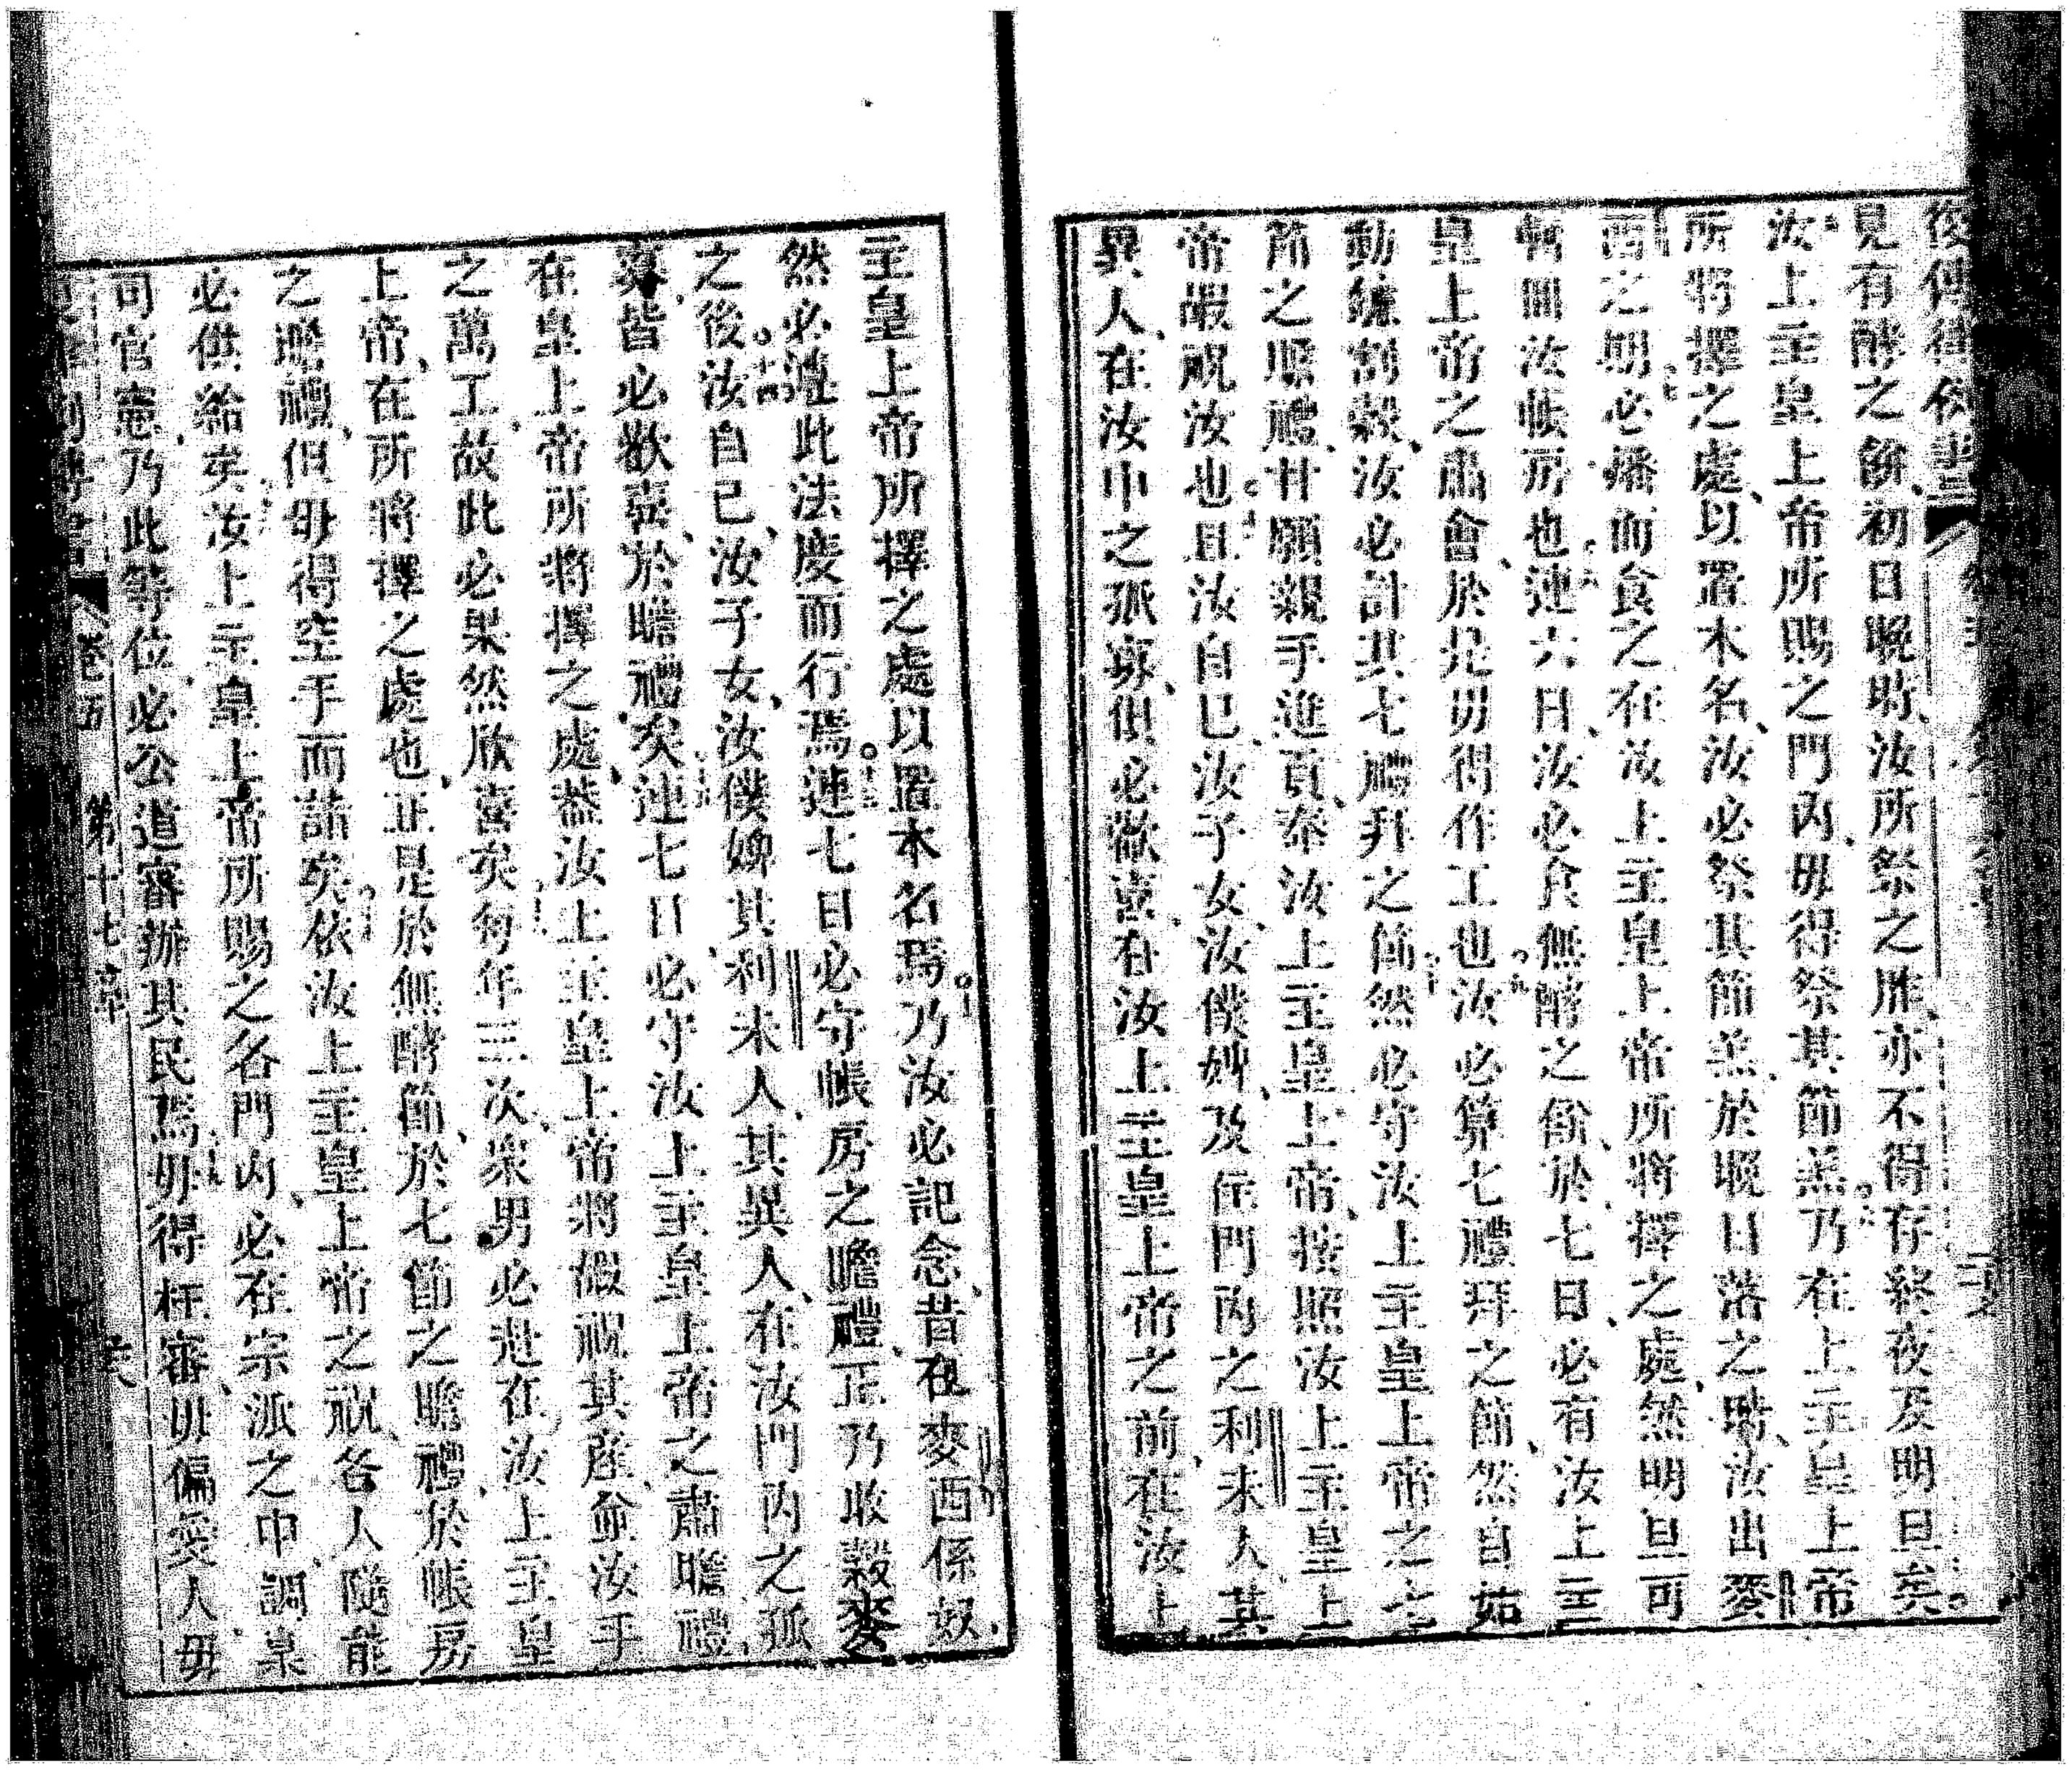 見有酵之餅初日晚時汝所祭之胙亦不得存終夜及明旦矣
汝上主皇上帝所賜之門內毋得祭其節羔乃在上主皇上帝
所將擇之處以置本名汝必祭其節羔於晚日落之時汝出麥
西之期必燔而食之在汝上主皇上帝所將擇之處然明旦可
暫回汝帳房也連六日汝必食無酵之餅於七日必有汝上主
皇上帝之肅會於是毋得作工也汝必算七禮拜之節然自始
動鐮割穀汝必計其七禮拜之節然必守汝上主皇上帝之七
節之瞻禮甘願親手進貢奉汝上主皇上帝按照汝上主皇上
帝嘏祝汝也且汝自己汝子女汝僕婢及住門內之利未人其
異人在汝中之孤寡俱必歡喜在汝上主皇上帝之前在汝上
主皇上帝所擇之處以置本名焉乃汝必記念昔在麥西係奴
然必遵此法度而行焉連七日必守帳房之瞻禮正乃收穀麥
之後汝自己汝子女汝僕婢其利未人其異人在汝門內之孤
寡皆必歡喜於瞻禮矣連七日必守汝上主皇上帝之肅瞻禮
在皇上帝所將擇之處蓋汝上主皇上帝將嘏祝其產兪汝手
之萬工故此必果然欣喜矣每年三次眾男必赴在汝上主皇
上帝在所將擇之處也正是於無酵節於七節之瞻禮於帳房
之瞻禮但毋得空手而詣矣依汝上主皇上帝之祝各人隨能
必供給矣汝上主皇上帝所賜之各門內必在宗派之中調臬
司官憲乃此等位必公道審辦其民焉毋得枉審毋偏愛人毋
卷五 第十七章